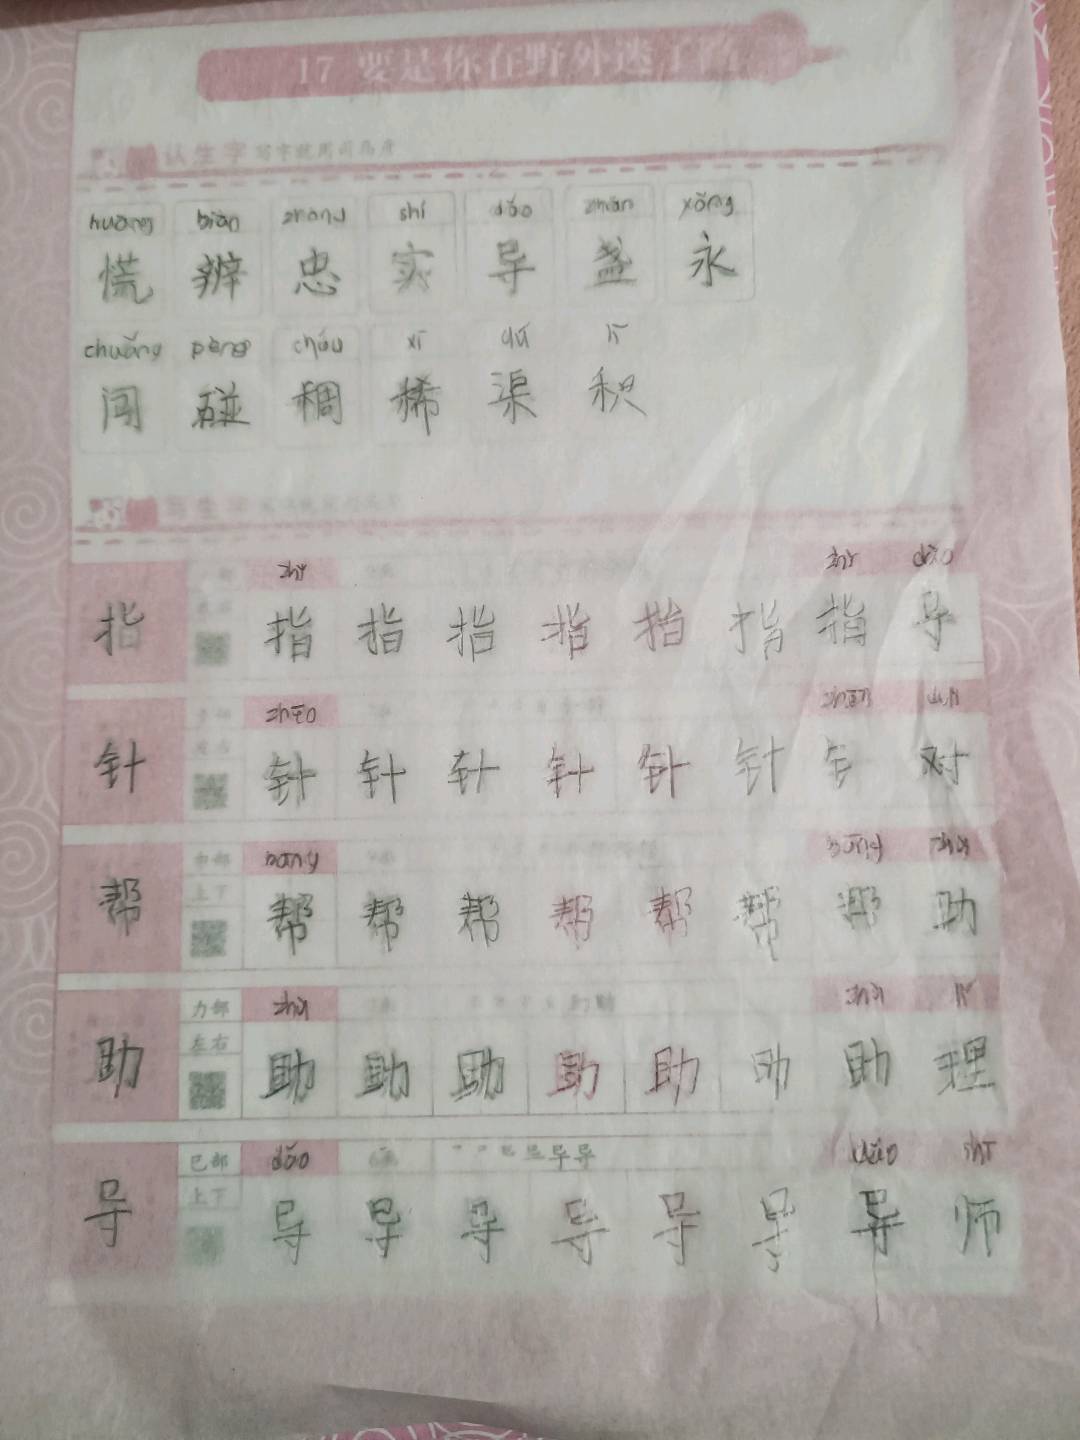 17 要是你在野外迷了路
认生字 写字就用司马彦
huāng biàn zhōng shí dǎo zhǎn yǒng
慌 辨 忠 实 导 盏 永
chuǎng pèng chóu xī qú jī
闯 碰 稠 稀 渠 积
写生字
zhǐ zhǐ dǎo
指 指 指 指 指 指 指 指 导
针 针 针 针 针 针 针 针 对
bāng
帮 上下 帮 帮 帮 帮 帮 帮 帮 助
力部 zhù zhù lǐ
左右
助 助 助 助 助 助 助 助 理
巳部 dǎo dǎo shī
上下
导 导 导 导 导 导 导 导 师